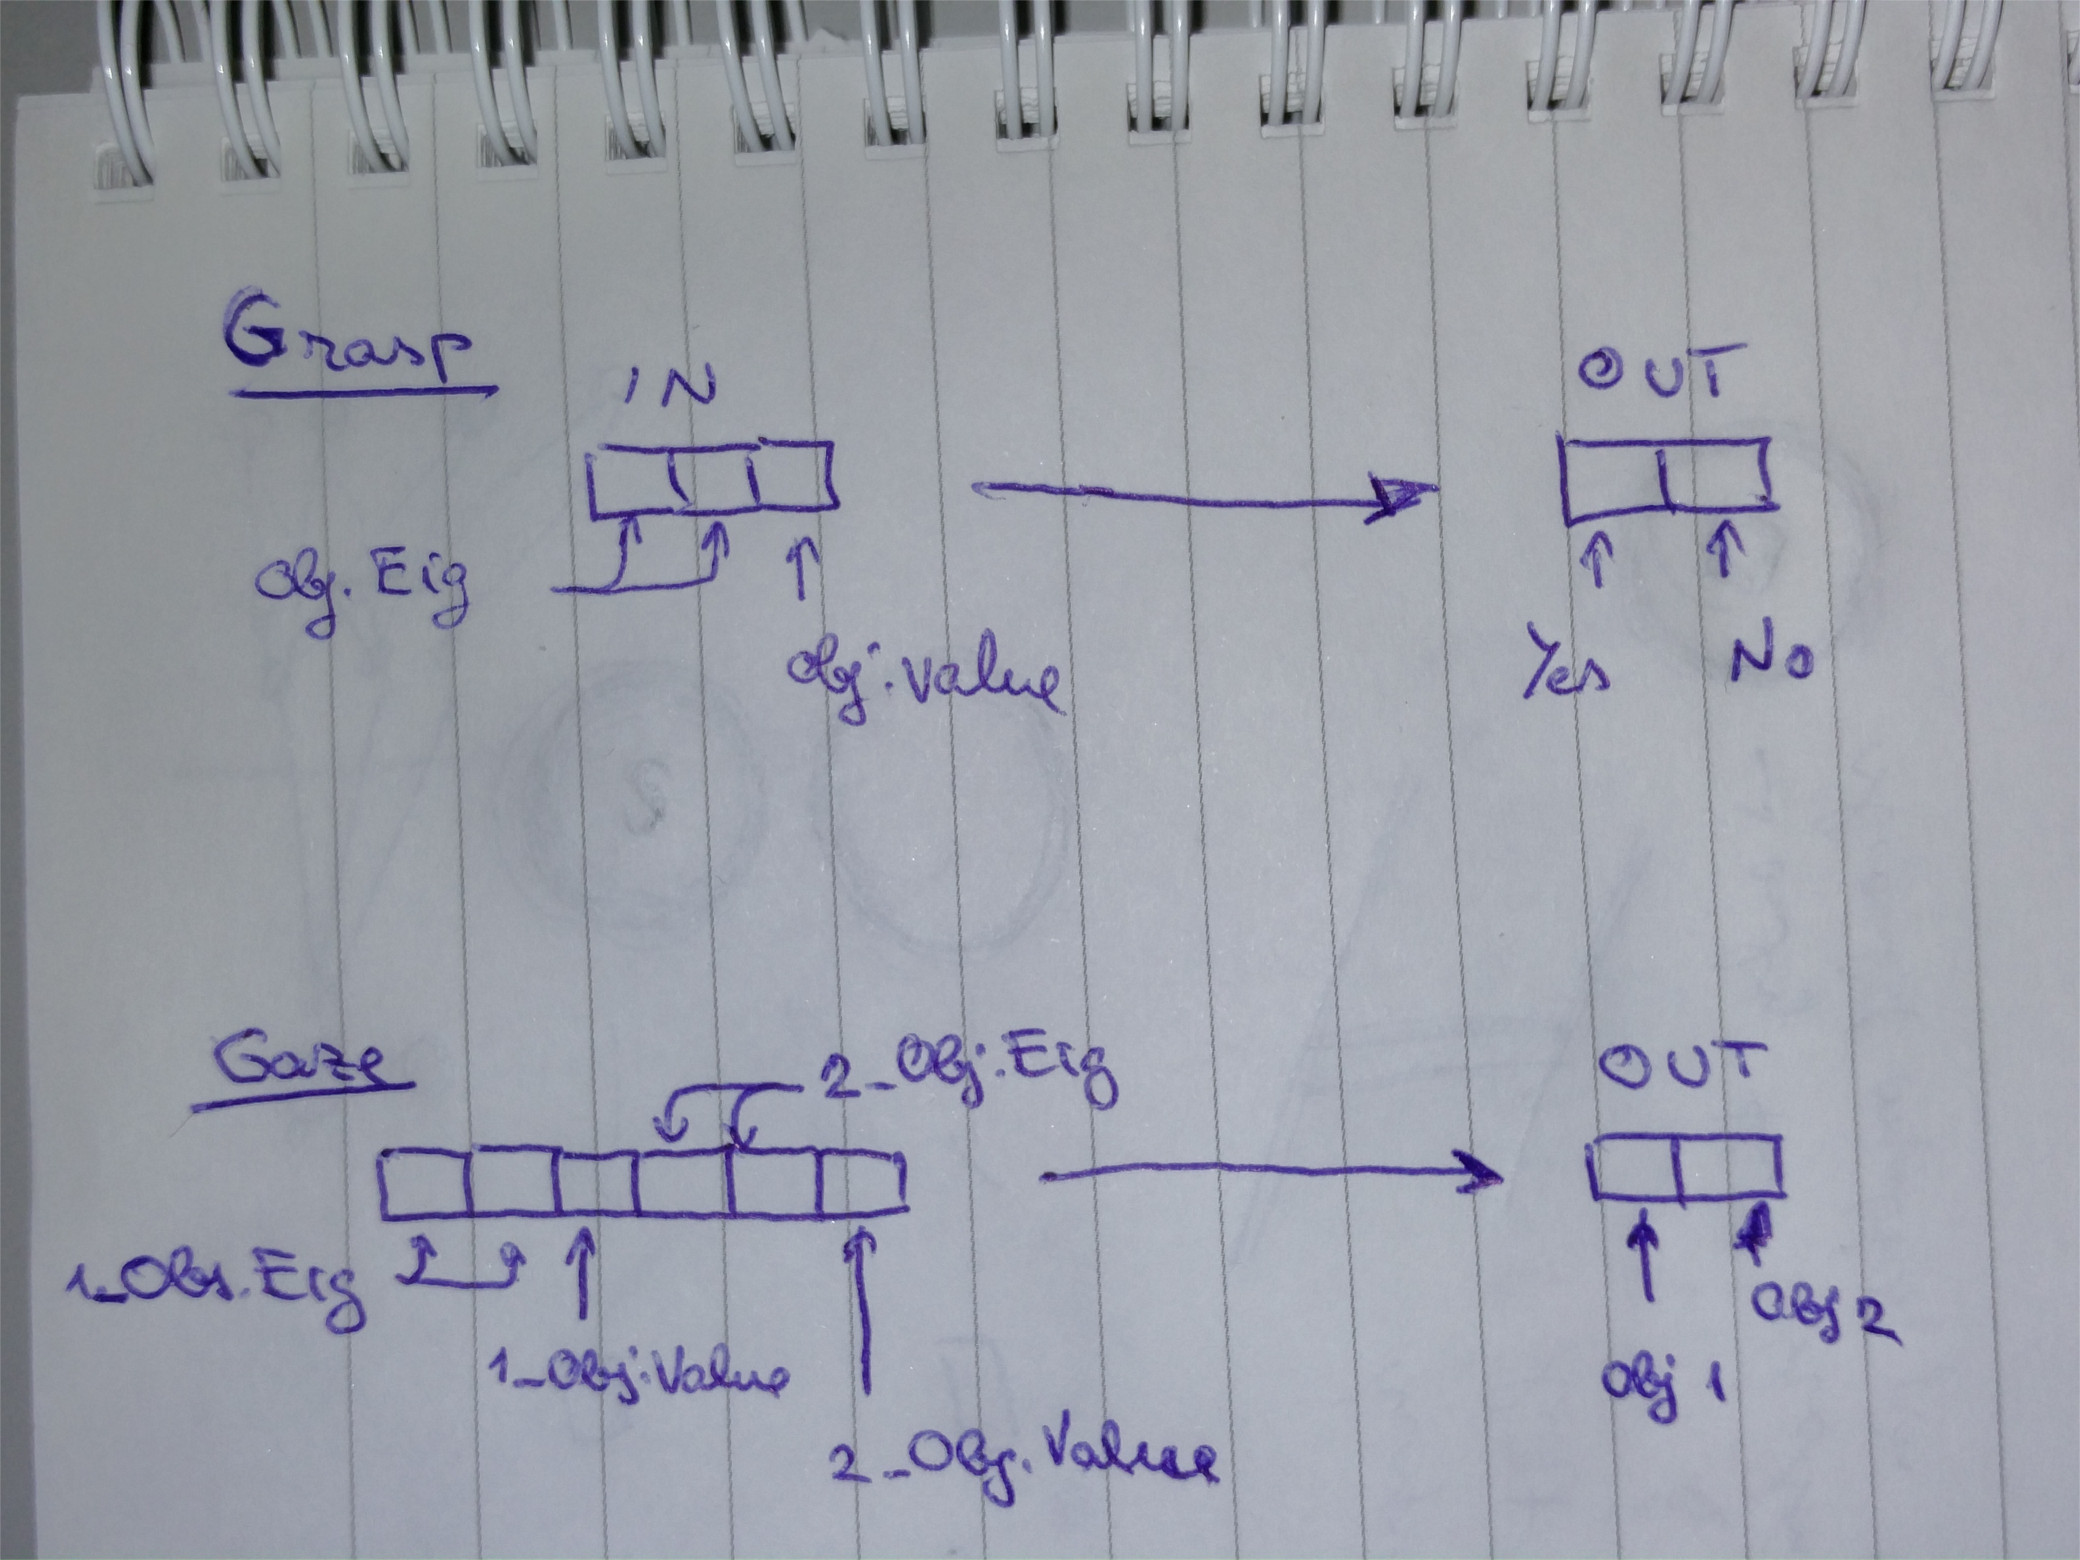 Grasp
IN
OUT
Obj. Eig
Obj. Value
Yes
No
Gaze
2_Obj. Eig
OUT
1_Obj. Eig
1_Obj. Value
2_Obj. Value
Obj 1
Obj 2